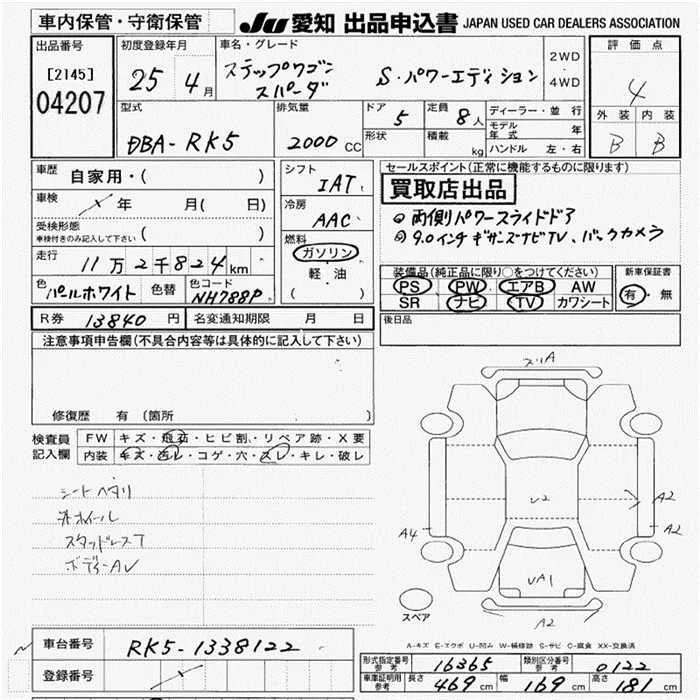 車内保管・守衛保管
JU 愛知 出品申込書 JAPAN USED CAR DEALERS ASSOCIATION
出品番号
[2145]
04207
初度登録年月
25 4月
車名・グレード
ステップワゴン
スパーダ
S・パワーエディション
2WD
・
4WD
評価点
4
外装 内装
B B
型式
DBA-RK5
排気量
2000 CC
ドア 5
形状
定員 8人
積載 kg
ディーラー・並行
モデル年式 年
ハンドル 左・右
車歴 自家用・( )
車検 年 月( 日)
受検形態
車検付きのみ記入して下さい ( )
走行 11万2千824km
色 パールホワイト 色替 色コード NH788P
シフト
IAT
冷房
AAC
燃料
ガソリン
軽・油
( )
セールスポイント(正常に機能するものに限ります)
買取店出品
◎両側パワースライドドア
◎9.0インチギサンズナビTV、バックカメラ
装備品(純正品に限り○をつけてください)
PS PW エアB AW
SR ナビ TV カワシート
新車保証書
有・無
R券 13840円 名変通知期限 月 日
後日品
注意事項申告欄(不具合内容等は具体的に記入して下さい)
修復歴 有(箇所 )
検査員
記入欄
FW キズ・飛石・ヒビ割・リペア跡・X要
内装 キズ・汚レ・コゲ・穴・スレ・キレ・破レ
シートヘタリ
スタッドレスT
スリA
A2
A2
A4
U2
UA1
A2
スペア
A-キズ E-エクボ U-凹み W-補修跡 S-サビ C-腐食 XX-交換済
車台番号 RK5-1338122
登録番号
形式指定番号 参考 16365 類別区分番号 参考 0122
車庫証明用 参考 長さ 469cm 幅 169cm 高さ 181cm